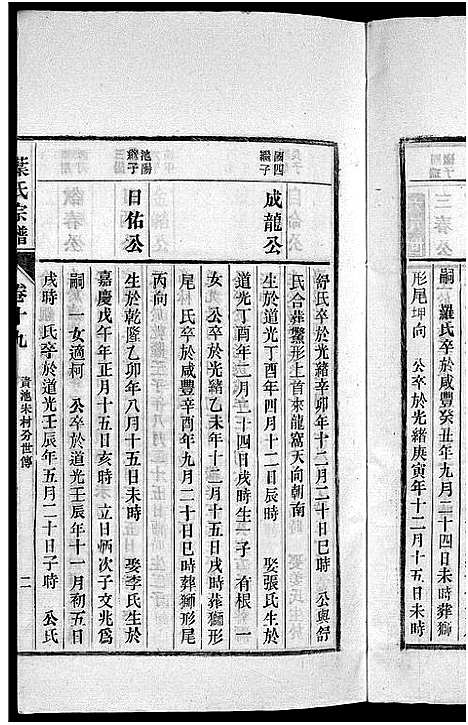 三春公
嗣 羅氏卒於咸豐癸丑年九月二十四日未時葬獅
形尾坤向 公卒於光緒庚寅年十二月十五日未時
舒氏卒於光緒辛卯年十二月二十日巳時 公與舒
氏合葬鰲形上首來龍窩天向朝南
國四繼子
成龍公
生於道光丁酉年四月十二日辰時 娶張氏生於
道光丁酉年二月二十四日戌時生一子 有根 一
女 公卒於光緒乙未年十二月十五日戌時葬獅形
尾 氏卒於咸豐辛酉年九月二十日巳時葬獅形尾
丙向
池陽繼子
日佑公
生於乾隆乙卯年八月十五日未時 娶李氏生於
嘉慶戊午年正月十五日亥時 立日炳次子文兆爲
嗣 一女適柯 公卒於道光壬辰年十一月初五日
戌時 氏卒於道光壬辰年五月二十日子時 公氏
葉氏宗譜
卷十九
貴池朱村分世傳
二